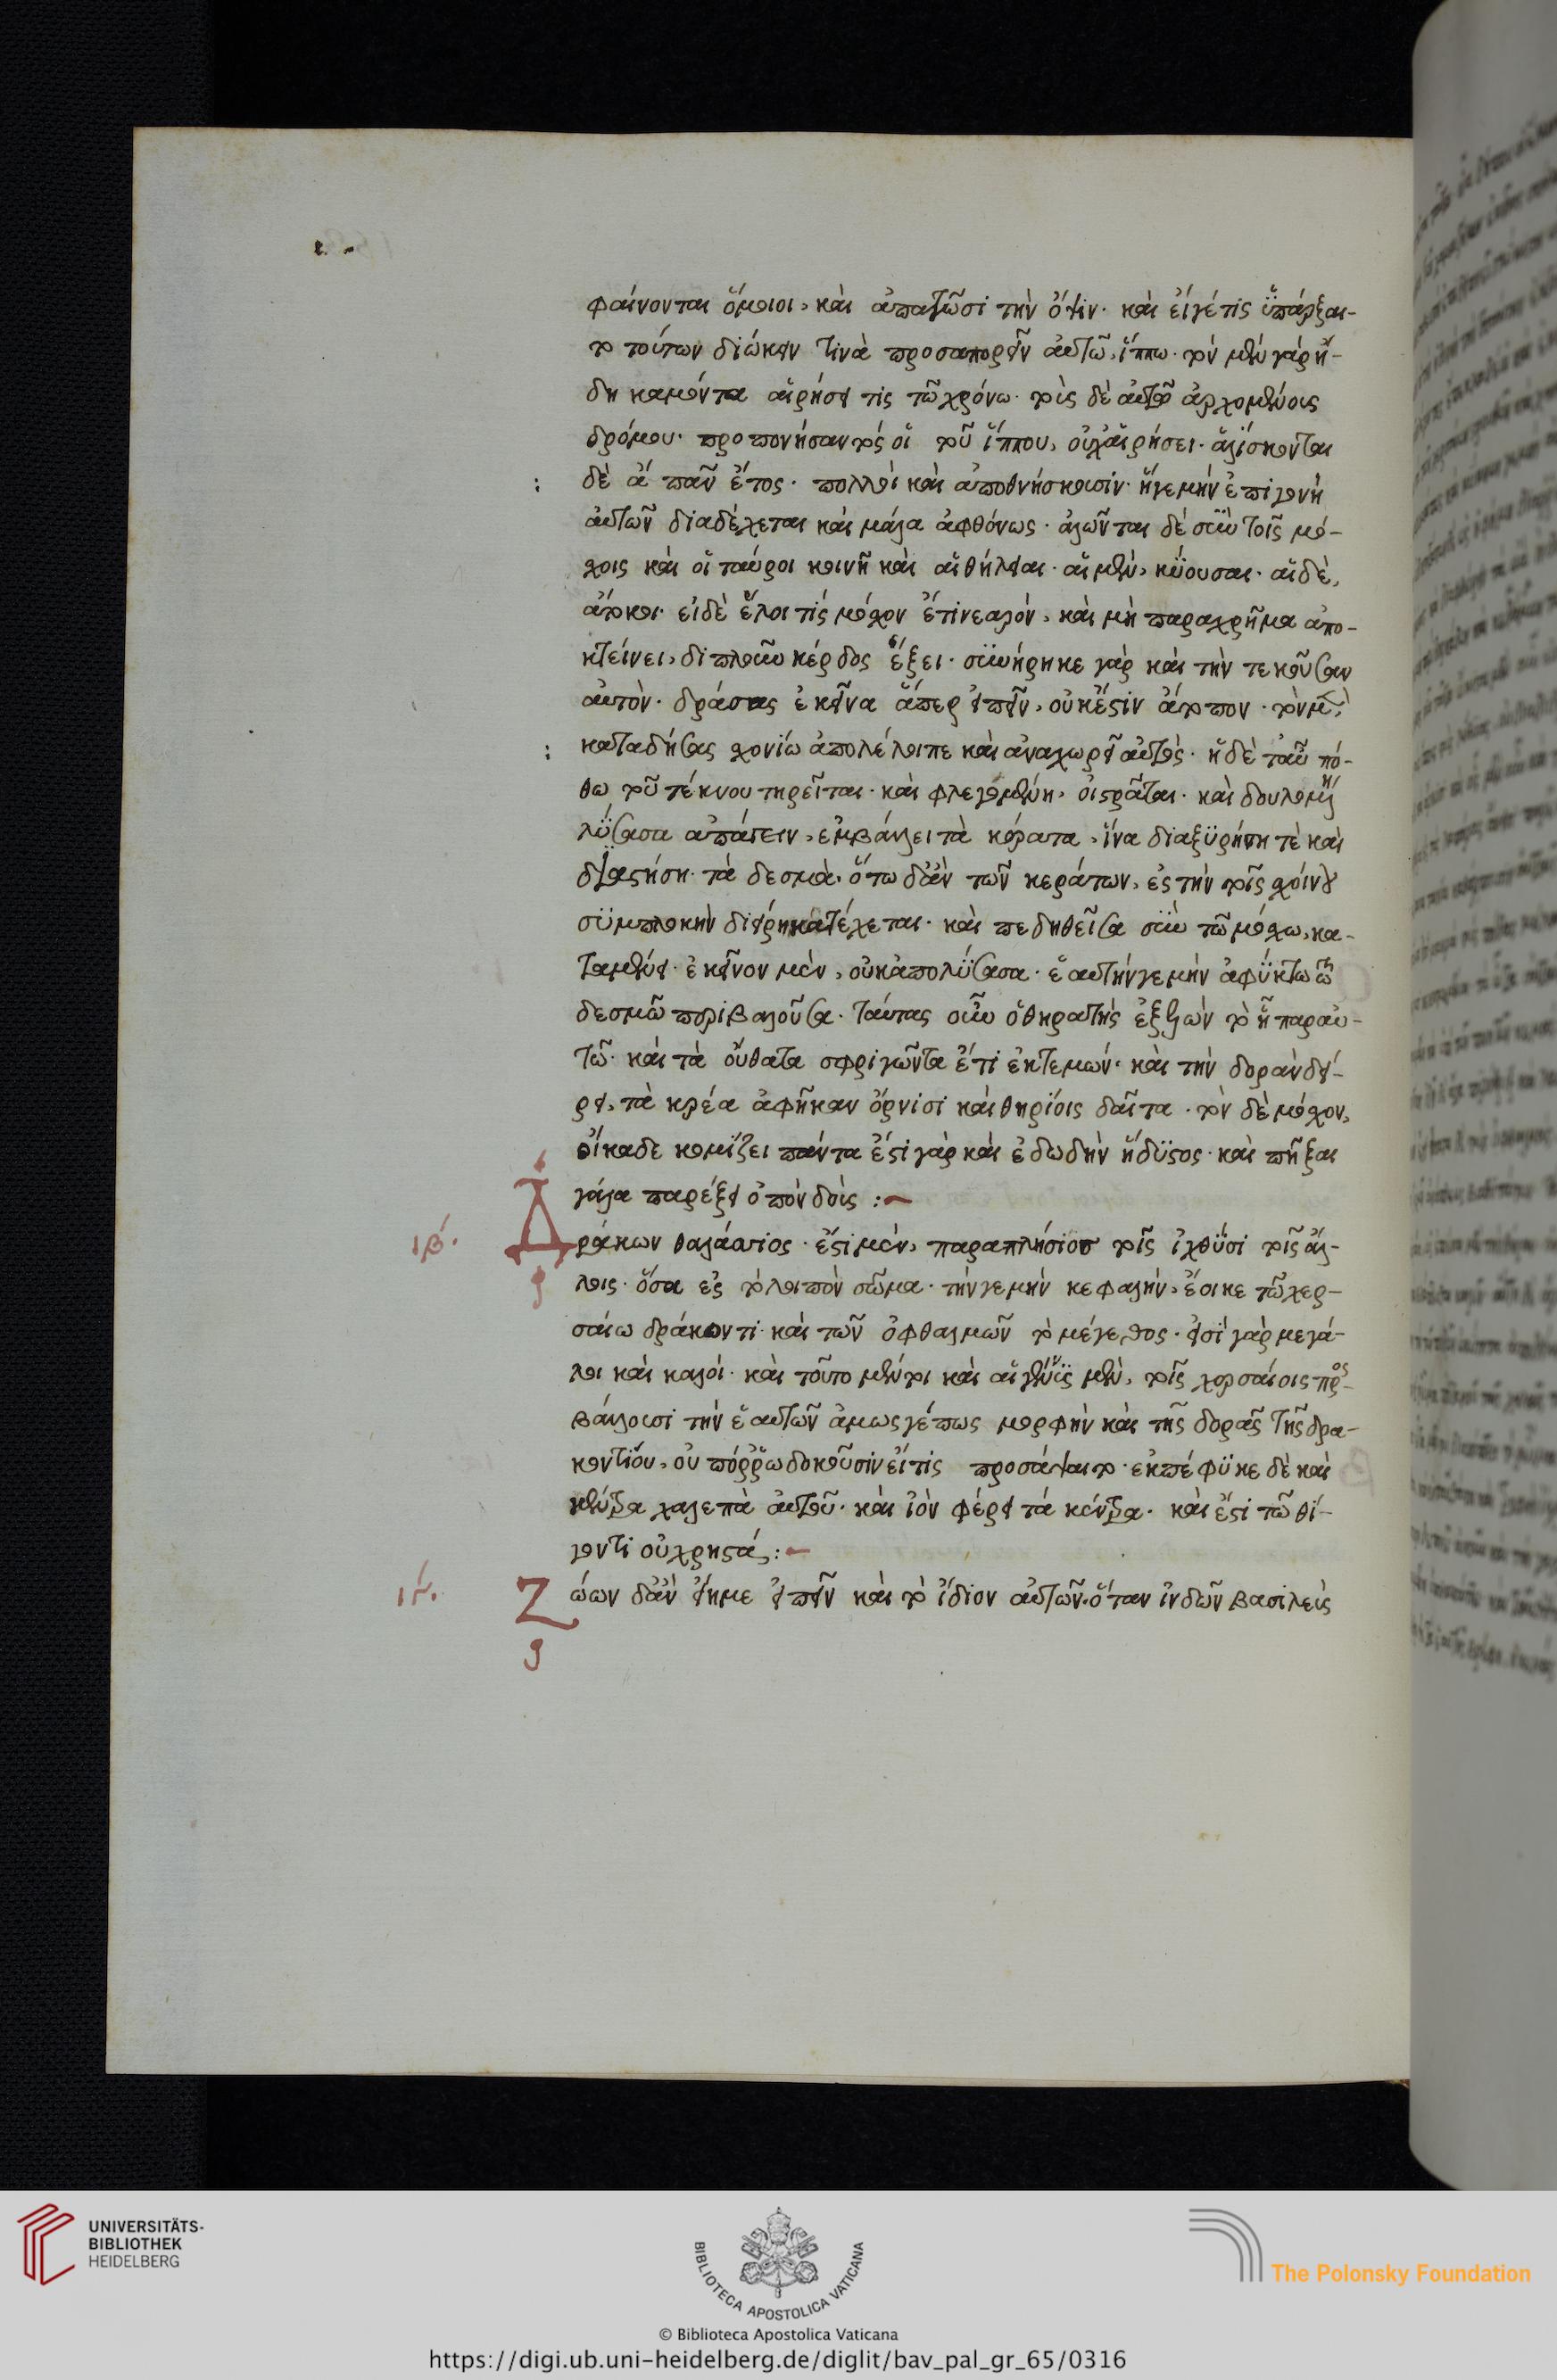 φαίνονται ὅμοιοι, καὶ ἀπατῶσι τὴν ὄψιν· καὶ εἴγέ τις ὑπάρξαι-
το τούτων διώκειν τινὰ προσαπορεῖν αὐτῶ, ἵππω· τὸν μὲν γὰρ ἤ-
δη καμόντα αἱρήσει τις τῶ χρόνω· τοῖς δὲ αὐτοῦ ἀρχομένοις
δρόμου· προπονήσαντός οἱ τοῦ ἵππου, οὐχαἱρήσει· ἁλίσκονται
δὲ ἀ πᾶν ἔτος· πολλοὶ καὶ ἀποθνήσκουσιν· ἥγε μὴν ἐπιγονὴ
αὐτῶν διαδέχεται καὶ μάλα ἀφθόνως· ἀλῶνται δὲ σὺν τοῖς μό-
χοις καὶ οἱ ταῦροι κοινῆ καὶ αἱ θήλειαι· αἱ μὲν, κύουσαι· αἱ δὲ,
ἄρτοκοι· εἰ δὲ ἕλοι τίς μόσχον ἔτι νεαλὸν, καὶ μὴ παραχρῆμα ἀπο-
κτείνει, διπλοῦν κέρδος ἕξει· συνήρηκε γὰρ καὶ τὴν τεκοῦσαν
αὐτὸν· δράσας ἐκεῖνα ἅπερ εἰπεῖν, οὐκ ἔστιν ἄτοπον· τὸν μὲν
καταδήσας σχοινίω ἀπολέλοιπε καὶ ἀναχωρεῖ αὐτὸς· ἡ δὲ τῶ πό-
θω τοῦ τέκνου τηρεῖται· καὶ φλεγομένη, οἰστρᾶται· καὶ βουλομένη
λύσασα ἀπάγειν, ἐμβάλλει τὰ κέρατα, ἵνα διαξυρήση τὲ καὶ
διαστήση τὰ δεσμὰ, ὅτω δ' ἂν τῶν κεράτων, ἐς τὴν τοῖς σχοίνου
συμπλοκὴν διείρη κατέχεται· καὶ πεδηθεῖσα σὺν τῶ μόσχω, κα-
ταμένει· ἐκεῖνον μὲν, οὐκ ἀπολύσασα· ἑαυτὴν γε μὴν ἀφύκτω τῶ
δεσμῶ περιβαλοῦσα· ταύτας οὖν ὁ θηρατὴς ἐξελὼν τὸ ἧπαρ αὐ-
τῶ· καὶ τὰ οὔθατα σφριγῶντα ἔτι ἐκτεμών· καὶ τὴν δορὰν δεί-
ρει, τὰ κρέα ἀφῆκαν ὄρνισι καὶ θηρίοις δαῖτα· τὸν δὲ μόσχον,
οἴκαδε κομίζει πάντα ἔστι γὰρ καὶ ἐδωδὴν ἥδυστος· καὶ πῆξαι
γάλα παρέξει ὀπὸν δοὶς :~
ιβ΄. Δράκων θαλάττιος· ἔστι μὲν, παραπλήσιος τοῖς ἰχθύσι τοῖς ἄλ-
λοις· ὅσα ἐς τὸ λοιπὸν σῶμα· τὴν γε μὴν κεφαλὴν, ἔοικε τῶ χερ-
σαίω δράκοντι· καὶ τῶν ὀφθαλμῶν τὸ μέγεθος· εἰσὶ γὰρ μεγά-
λοι καὶ καλοὶ· καὶ τοῦτο μέντοι καὶ αἱ γένυς μὲν, τοῖς χερσαίοις προς-
βάλλουσι τὴν ἑαυτῶν ἁμωςγέπως μορφὴν καὶ τῆς δορᾶς τῆς δρα-
κοντίου, οὐ πόρρω δοκοῦσιν εἴ τις προσάψαιτο· ἐκπέφυκε δὲ καὶ
κέντρα χαλεπὰ αὐτοῦ· καὶ ἰὸν φέρει τὰ κέντρα· καὶ ἔστι τῶ θί-
γοντι οὐχρηστά :~
ιγ΄. Ζώων δ' ἂν εἴη με εἰπεῖν καὶ τὸ ἴδιον αὐτῶν. ὅταν ἰνδῶν βασιλεὺς
UNIVERSITÄTS-
BIBLIOTHEK
HEIDELBERG
BIBLIOTECA APOSTOLICA VATICANA
The Polonsky Foundation
© Biblioteca Apostolica Vaticana
https://digi.ub.uni-heidelberg.de/diglit/bav_pal_gr_65/0316